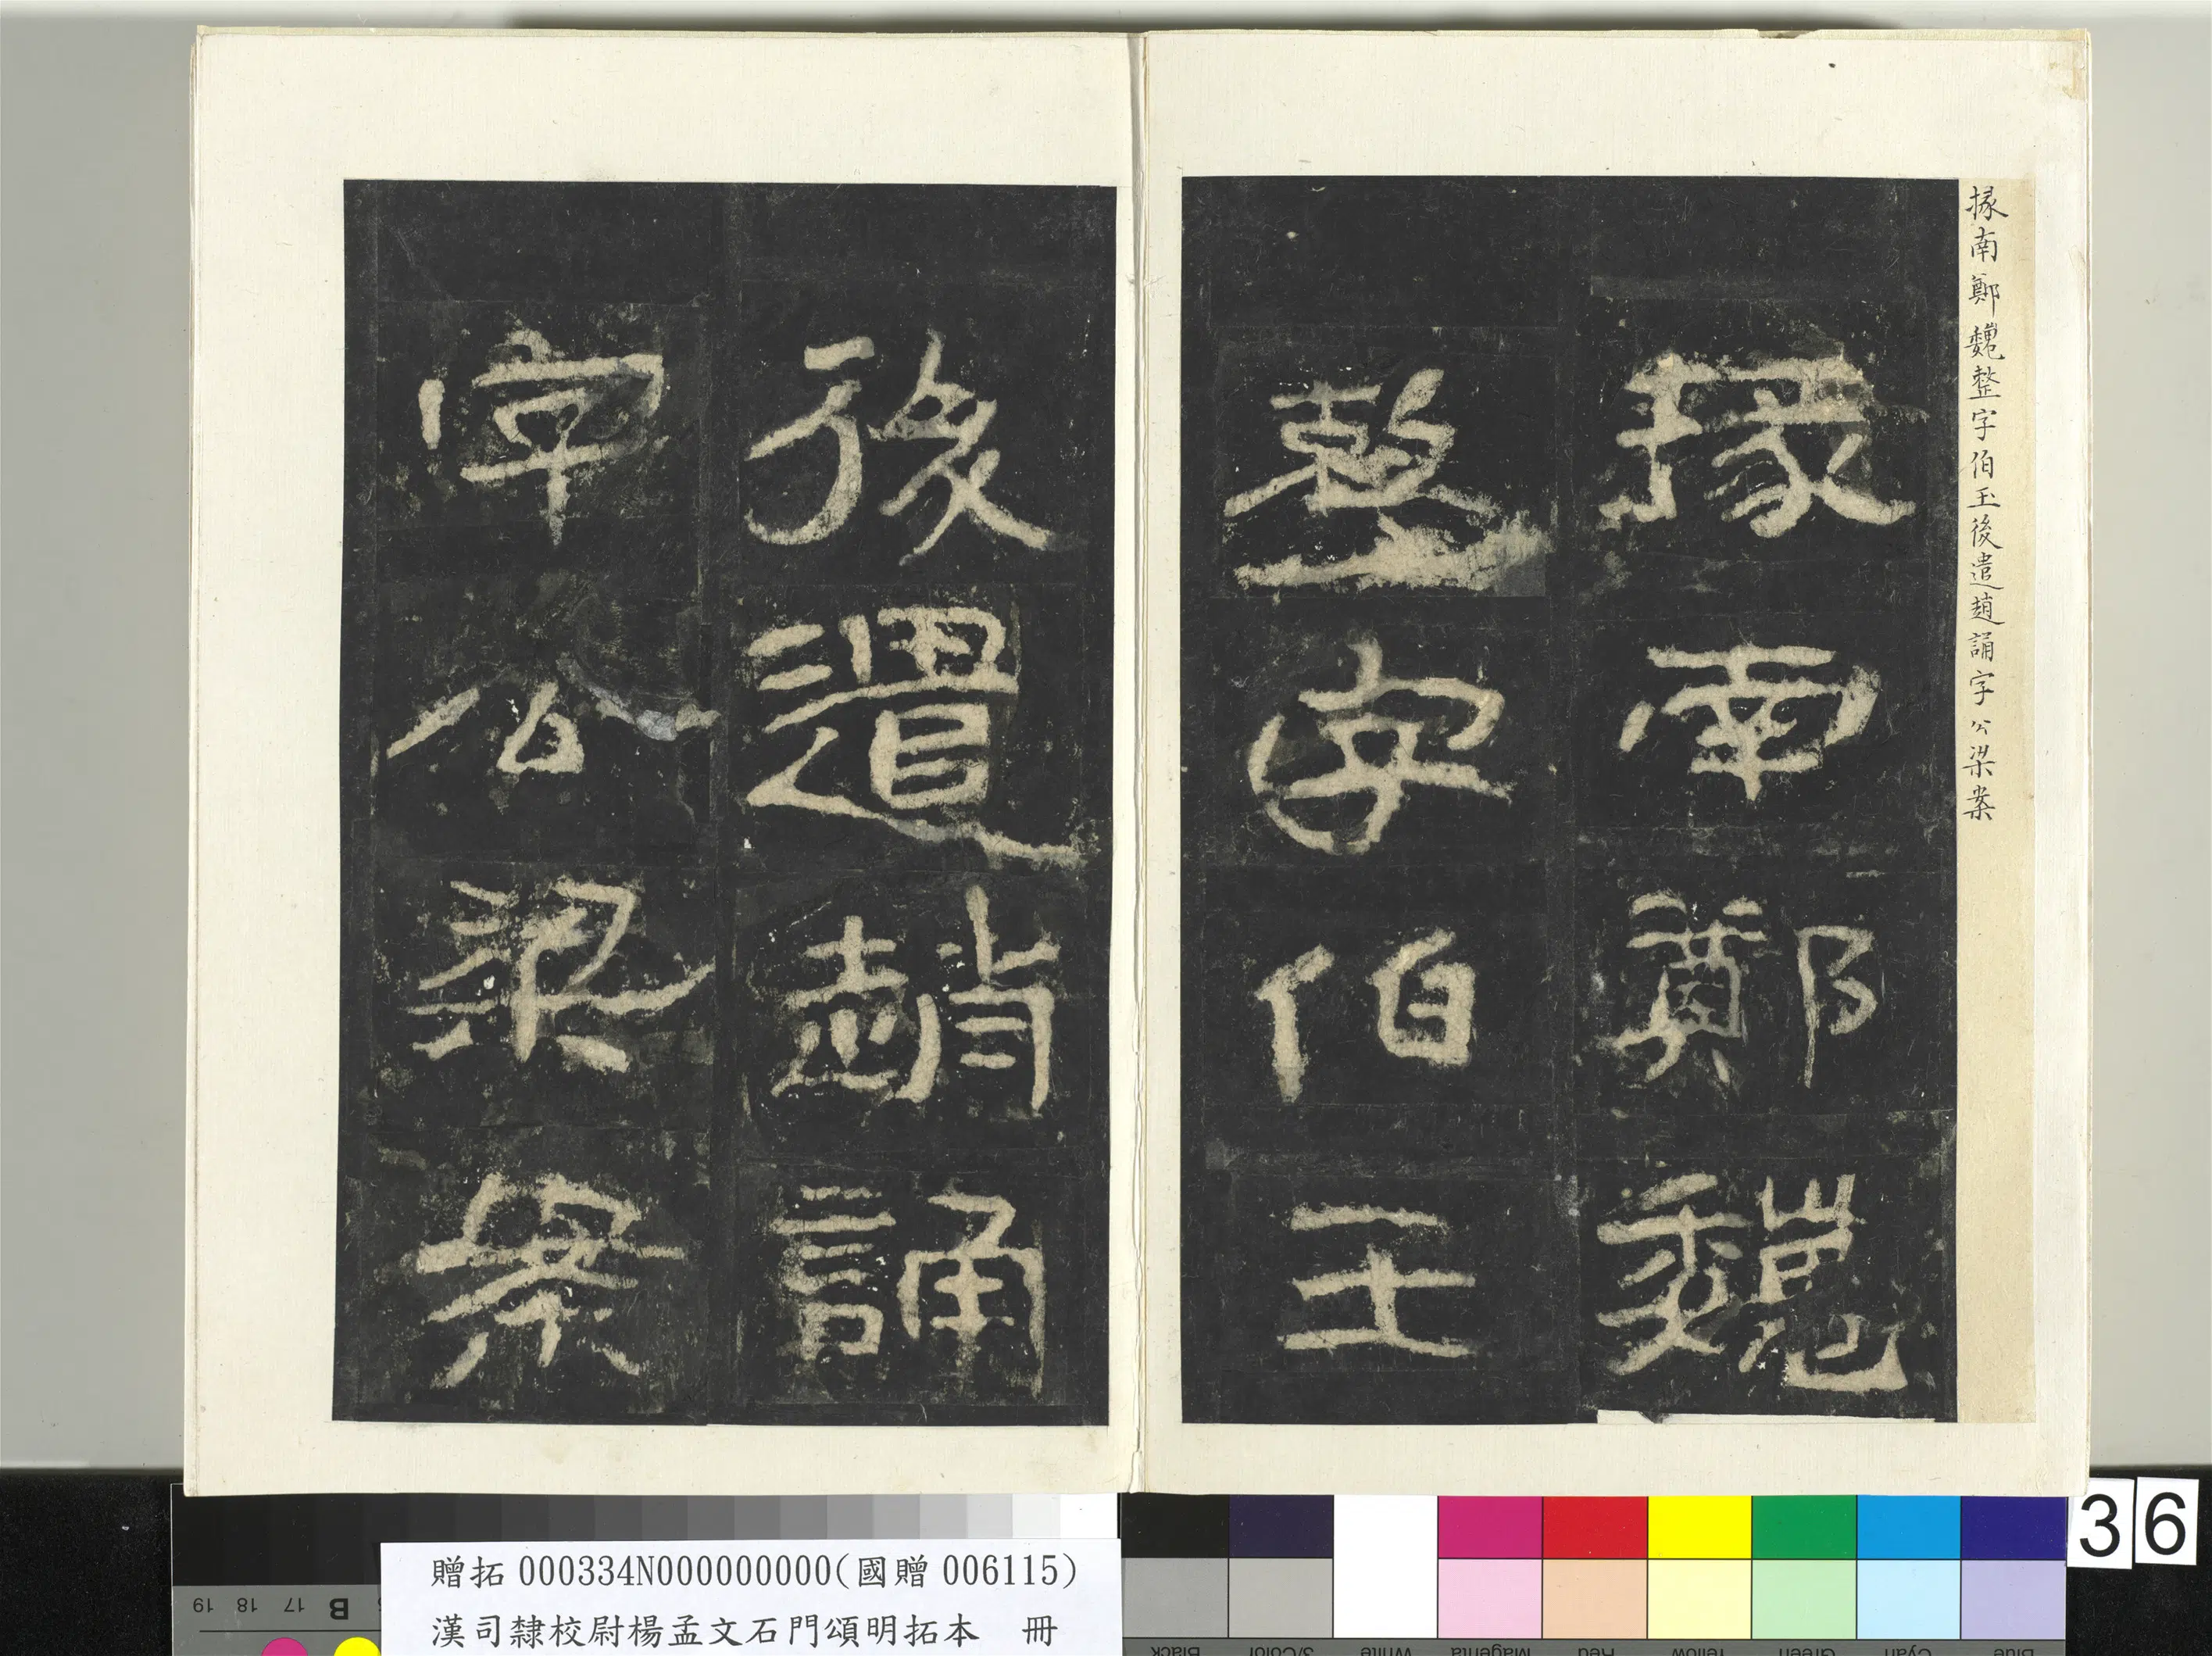 掾南鄭魏整字伯玉後遣趙誦字公梁案
掾南鄭魏
整字伯王
後遣趙誦
字公梁案
36
贈拓000334N000000000(國贈006115)
漢司隸校尉楊孟文石門頌明拓本 冊
19 18 17 B
Black 3/Color White Magenta Red Yellow Green Cyan Blue